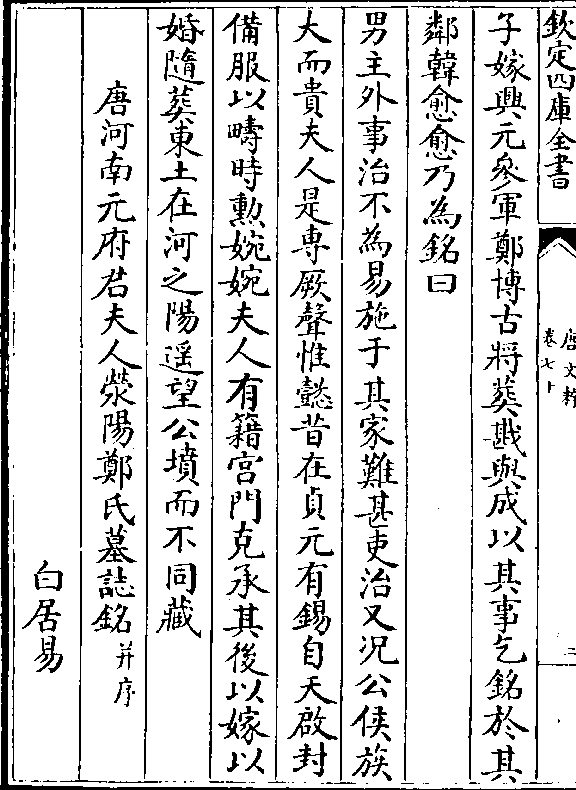 欽定四庫全書
唐文粹
卷七十
三
子嫁興元參軍鄭博古將葬戡與成以其事乞銘於其
鄰韓愈愈乃為銘曰
男主外事治不為易施于其家難甚吏治又況公侯族
大而貴夫人是専厥聲惟懿昔在貞元有錫自天啟封
備服以疇時勲婉婉夫人有籍宫門克承其後以嫁以
婚隨葬東土在河之陽遥望公墳而不同藏
唐河南元府君夫人滎陽鄭氏墓誌銘并序
白居易